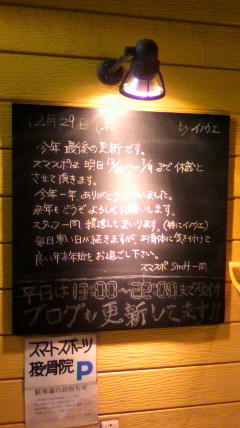 12月29日(木) by イノウエ
今年最後の更新です。
スマスポは、明日12/30～1/4まで休診と
させて頂きます。
今年一年、ありがとうございました。
来年もどうぞよろしくお願いします。
スタッフ一同、精進してまいります。(特にイノウエ)
毎日寒い日が続きますが、お身体に気を付けて
良い年末年始をお過ごし下さい。
スマスポ Staff 一同
平日は13:00～22:00まで受付
ブログも更新してます!!
スマートスポーツ
接骨院 P
駐車場のお知らせ